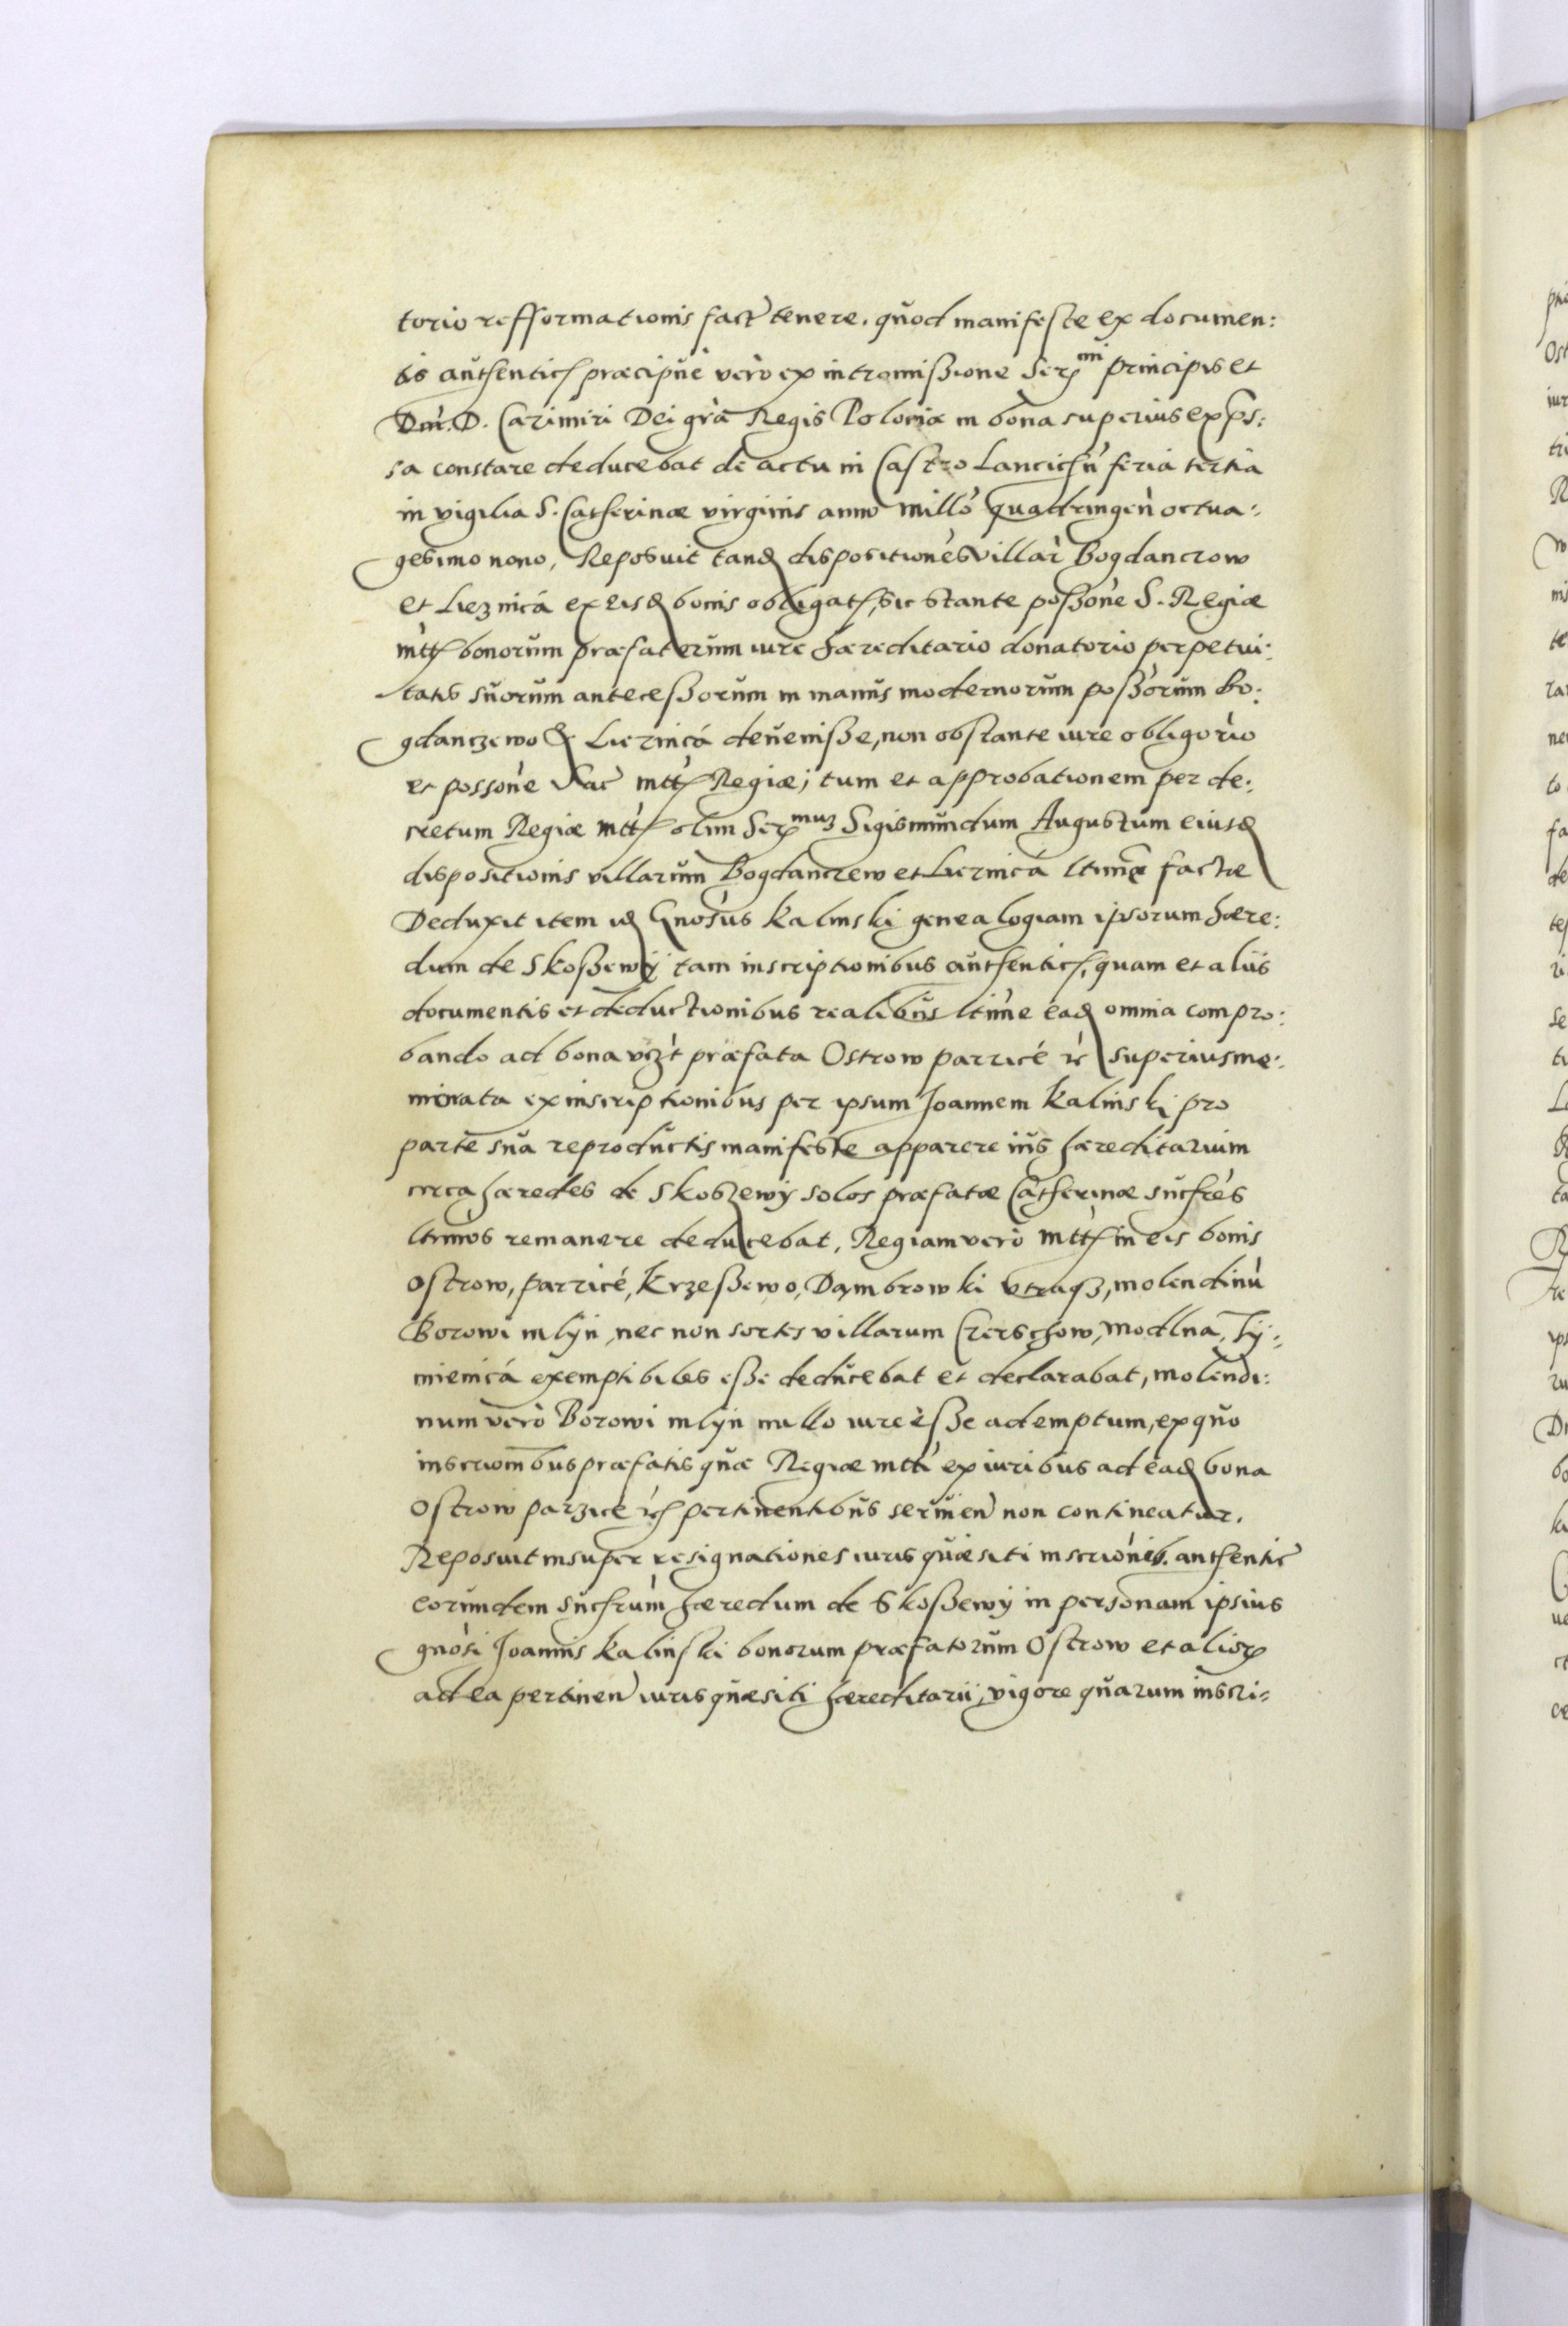 torio refformationis fact tenere. quod manifeste ex documen:
tis authentic præcipue vero ex intromissione Ser mi principis et
Dni. D. Cazimiri Dei gra Regis Poloniæ in bona superius exps:
sa constare deducebat de actu in Castro Lancicien feria tertia
in vigilia S. Catherinæ virginis anno millo quadringen octua:
gesimo nono, Reposuit tand dispositiones villar Bogdanczow
et Lieznica ex eisd bonis obligat, sic stante possone S. Regiæ
mtt bonorum præfatorum iure hæreditario donatorio perpetui:
tatis suorum antecessorum in manus modernorum possorum Bo:
gdanczewo & Lieznica devenisse, non obstante iure obligorio
et possone Sac mtt Regiæ; tum et approbationem per de:
cretum Regiæ mtt olim Ser muz Sigismundum Augustum eiusd
dispositionis villarum Bogdanczew et Lieznica ltimæ factæ
Deduxit item id Gnosus Kalinski genealogiam ipsorum hære:
dum de Skossewÿ tam inscriptionibus authentic, quam et aliis
documentis et deductionibus realibus ltime ead omnia compro:
bando ad bona vzt præfata Ostrow parzicé rc superius me:
minata ex inscriptionibus per ipsum Joannem Kalinski pro
parte sua reproductis manifeste apparere ius hæreditarium
circa hæredes de Skoszewÿ solos præfatæ Catherinæ sucfres
ltimos remanere deducebat, Regiam vero mtt in eis bonis
Ostrow, parzicé, Krzessewo, Dambrowki vtraqz, molendinu
Borowi mlÿn, nec non sortes villarum Czerschow, modlna, Tÿ:
mienicá exemptibiles esse deducebat et declarabat, molendi:
num vero Borowi mlÿn nullo iure esse ademptum, ex quo
inscriombus præfatis quæ Regiæ mtti ex iuribus ad ead bona
Ostrow parzice rc pertinentibus servien non contineatur.
Reposuit insuper resignationes iuris quæsiti inscrionib. authentic
eorundem sucfrum hæredum de Skossewÿ in personam ipsius
gnosi Joannis Kalinski bonorum præfatorum Ostrow et alior
ad ea pertinen iuris quæsiti hæreditarii, vigore quarum inscri: